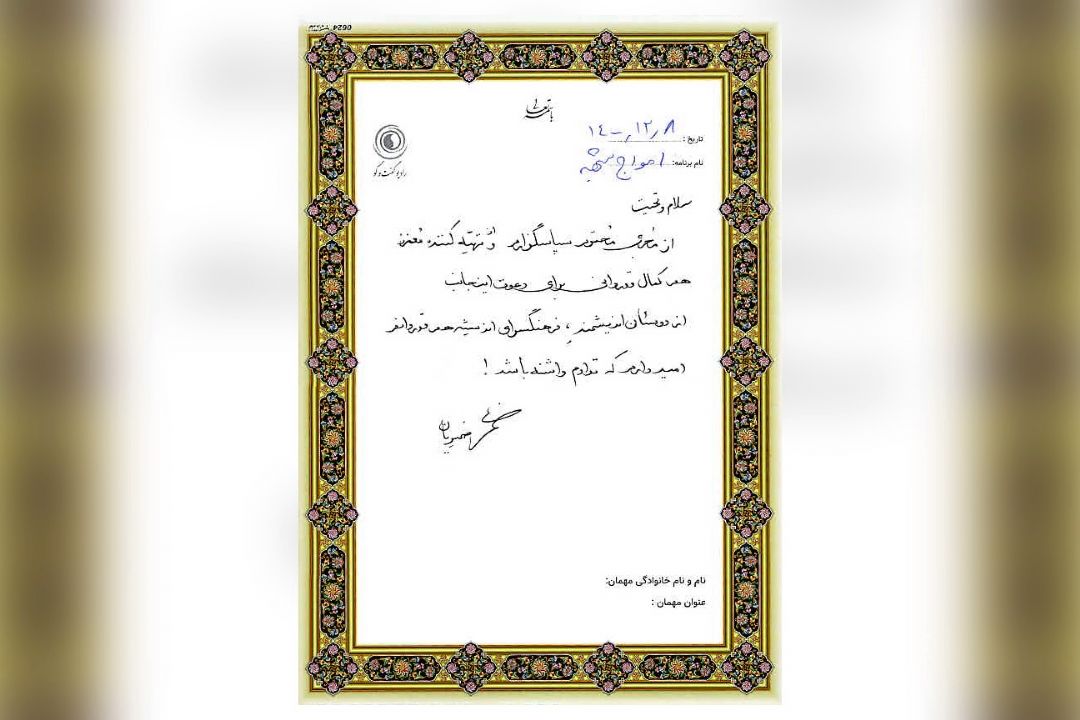 باسمه تعالی
تاریخ: ۱۴۰۰٫۱۲٫۸
رادیو گفت‌وگو
نام برنامه: امواج
سلام و تحیت
از مجری محترم سپاسگزارم و تهیه کننده معزز
هم کمال قدردانی برای دعوت اینجانب
از دوستان اندیشمند، فرهنگسرای اندیشه هم قدردانم
امیدوارم که تداوم داشته باشد!
نام و نام خانوادگی مهمان:
عنوان مهمان :